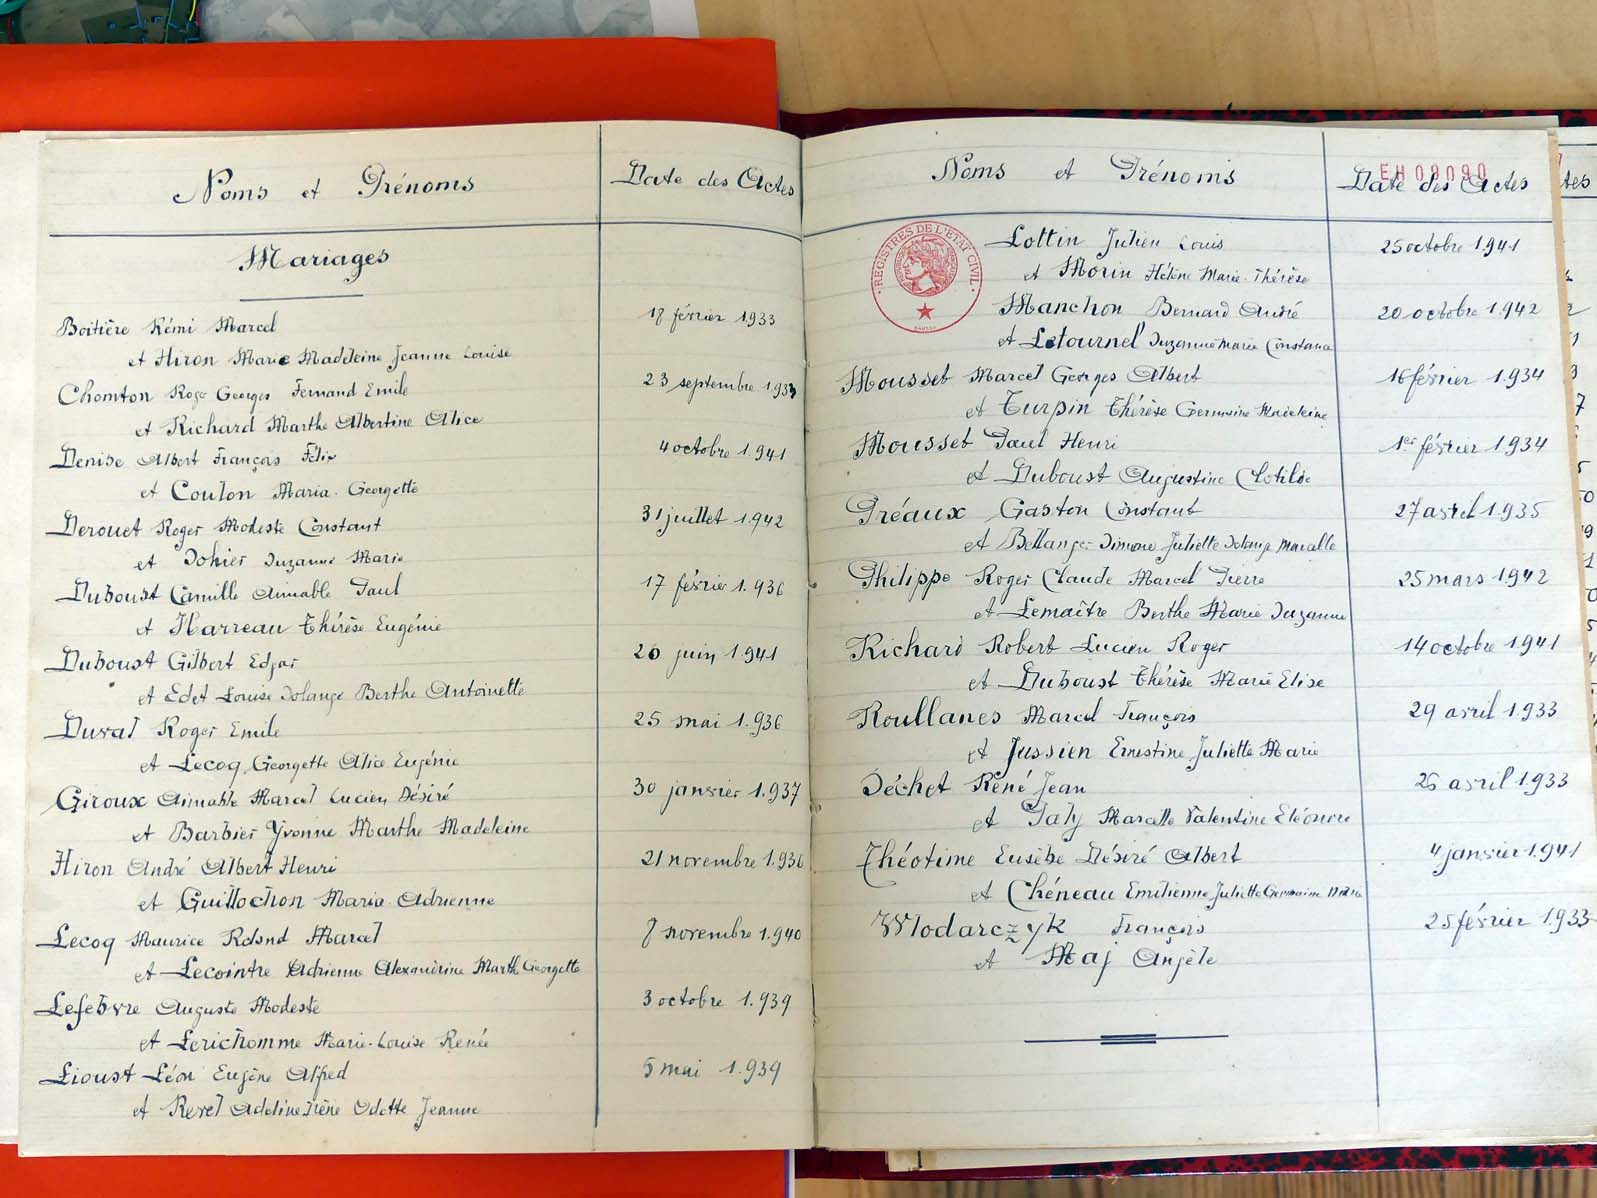 Noms et Prénoms Date des Actes
Mariages
Boitière Rémi Marcel 18 février 1.933
et Hiron Marie Madeleine Jeanne Louise
Chomton Roger Georges Fernand Emile 23 septembre 1.933
et Richard Marthe Albertine Alice
Denise Albert François Félix 4 octobre 1.941
et Coulon Maria-Georgette
Derouet Roger Modeste Constant 31 juillet 1.942
et Johier Suzanne Marie
Duboust Camille Aimable Paul 17 février 1.936
et Harreau Thérèse Eugénie
Duboust Gilbert Edgar 26 juin 1.941
et Edet Louise Solange Berthe Antoinette
Duval Roger Emile 25 mai 1.936
et Lecoq Georgette Alice Eugénie
Giroux Aimable Marcel Lucien Désiré 30 janvier 1.937
et Barbier Yvonne Marthe Madeleine
Hiron André Albert Henri 21 novembre 1.936
et Guillochon Maria Adrienne
Lecoq Maurice Roland Marcel 7 novembre 1.940
et Lecointre Adrienne Alexandrine Marthe Georgette
Lefebvre Auguste Modeste 3 octobre 1.939
et Lerichomme Marie-Louise Renée
Lioust Léon Eugène Alfred 5 mai 1.939
et Revel Adeline Irène Odette Jeanne
Noms et Prénoms Date des Actes
EH09090
REGISTRES DE L'ETAT CIVIL
Lottin Julien Louis 25 octobre 1.941
et Morin Hélène Marie-Thérèse
Manchon Bernard André 20 octobre 1.942
et Letournel Suzanne Marie Constance
Mousset Marcel Georges Albert 16 février 1.934
et Turpin Thérèse Germaine Madeleine
Mousset Paul Henri 1er février 1.934
et Duboust Augustine Clotilde
Préaux Gaston Constant 27 avril 1.935
et Bellanger Simone Juliette Solange Marcelle
Philippe Roger Claude Marcel Pierre 25 mars 1.942
et Lemaître Berthe Marie Suzanne
Richard Robert Lucien Roger 14 octobre 1.941
et Duboust Thérèse Marie Elise
Roullanes Marcel François 29 avril 1.933
et Jussien Ernestine Juliette Marie
Séchet René Jean 26 avril 1.933
et Paly Marcelle Valentine Eléonore
Théotime Eusèbe Désiré Albert 4 janvier 1.941
et Chéneau Emilienne Juliette Germaine
Wlodarczyk François 25 février 1.933
et Maj Anjèle